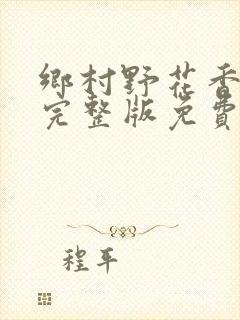 鄉村野花香
完整版免費
程平